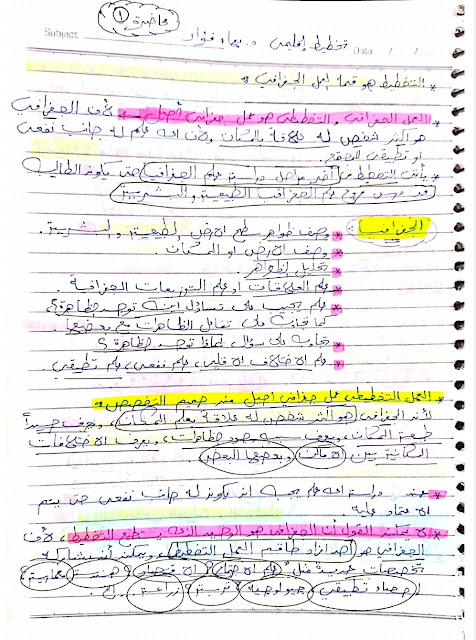 محاضرة ①
Subject
تخطيط إقليمي د. بهاء فؤاد
Date / /
* التخطيط هو قمة العمل الجغرافي *
* العمل الجغرافي والتخطيطي هو عمل جغرافي أصيل لأن الجغرافي
هو أكثر شخص له علاقة بالمكان ولأن أي علم له جانب نفعي
أو تطبيقي
* يأتي التخطيط في آخر مراحل دراسة علم الجغرافيا حتى يكون الطالب
قد درس فروع علم الجغرافيا الطبيعية والبشرية
الجغرافيا : * وصف ظواهر سطح الأرض الطبيعية والبشرية.
* وصف الأرض أو المكان.
* تحليل الظواهر.
* علم العلاقات أو علم التوزيعات الجغرافية.
* علم يجيب على تساؤل أين توجد الظاهرة؟
كما تجيب على تفاعل الظاهرات مع بعضها.
* تجابه على سؤال لماذا توجد الظاهرة؟
* علم الاختلاف الإقليمي، علم نفعي، علم تطبيقي.
* العمل التخطيطي عمل جغرافي أصيل من صميم التخصص *
لأن الجغرافي هو أكثر شخص له علاقة بعلم المكان، ويعرف جيداً
طبيعة المكان، ويعرف سبب وجود الظاهرات، ويعرف الاختلافات
المكانية بين الأماكن وبعضها البعض.
* عند دراسة أي علم يجب أن يكون له جانب نفعي حتى يتم
الاعتماد عليه.
* لا يمكننا القول أن الجغرافي هو الوحيد الذي يستطيع التخطيط، لأن
الجغرافي هو أحد أفراد طاقم العمل التخطيطي، ويمكن أن يشاركه
تخصصات عديدة مثل علم الاجتماع الاقتصاد هندسة معمارية
إحصاء تطبيقي جيولوجيا تربة زراعة